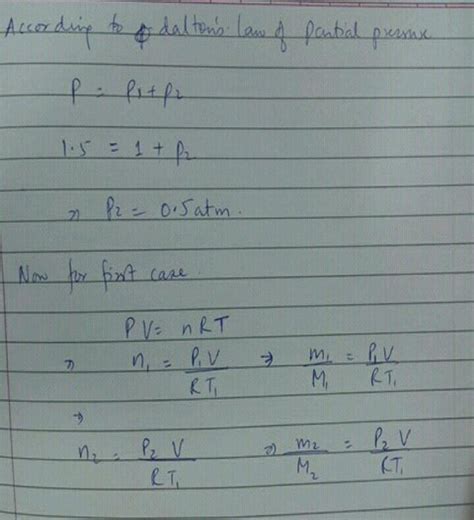 According to dalton's law of partial pressure
P = P1 + P2
1.5 = 1 + P2
⇒ P2 = 0.5 atm.
Now for first case.
PV = nRT
⇒ n1 = P1V/RT1 ⇒ m1/M1 = P1V/RT1
⇒
n2 = P2 V/RT1 ⇒ m2/M2 = P2 V/RT1